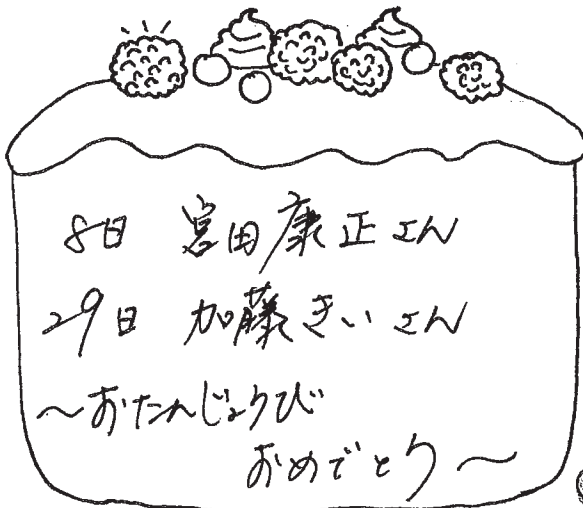 8日 宮田康正さん
29日 加藤きいさん
～おたんじょうび
おめでとう～